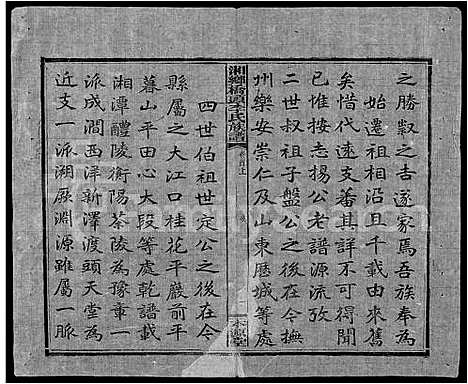 之勝㝡之吉遂家焉吾族奉為
始遷祖相沿且千載由來舊
矣惜代遠支蕃其詳不可得聞
已惟按志揚公老譜源流攷
二世叔祖子盤公之後在今撫
州樂安崇仁及山東歷城等處
湘鄉橋頭李氏族譜
卷首上
四世伯祖世定公之後在今
縣屬之大江口桂花平巖前平
暮山平田心大段等處乾譜載
湘潭醴陵衡陽茶陵為豫章一
派成澗西澤新澤渡頭天堂為
近支一派溯厥淵源雖屬一脈